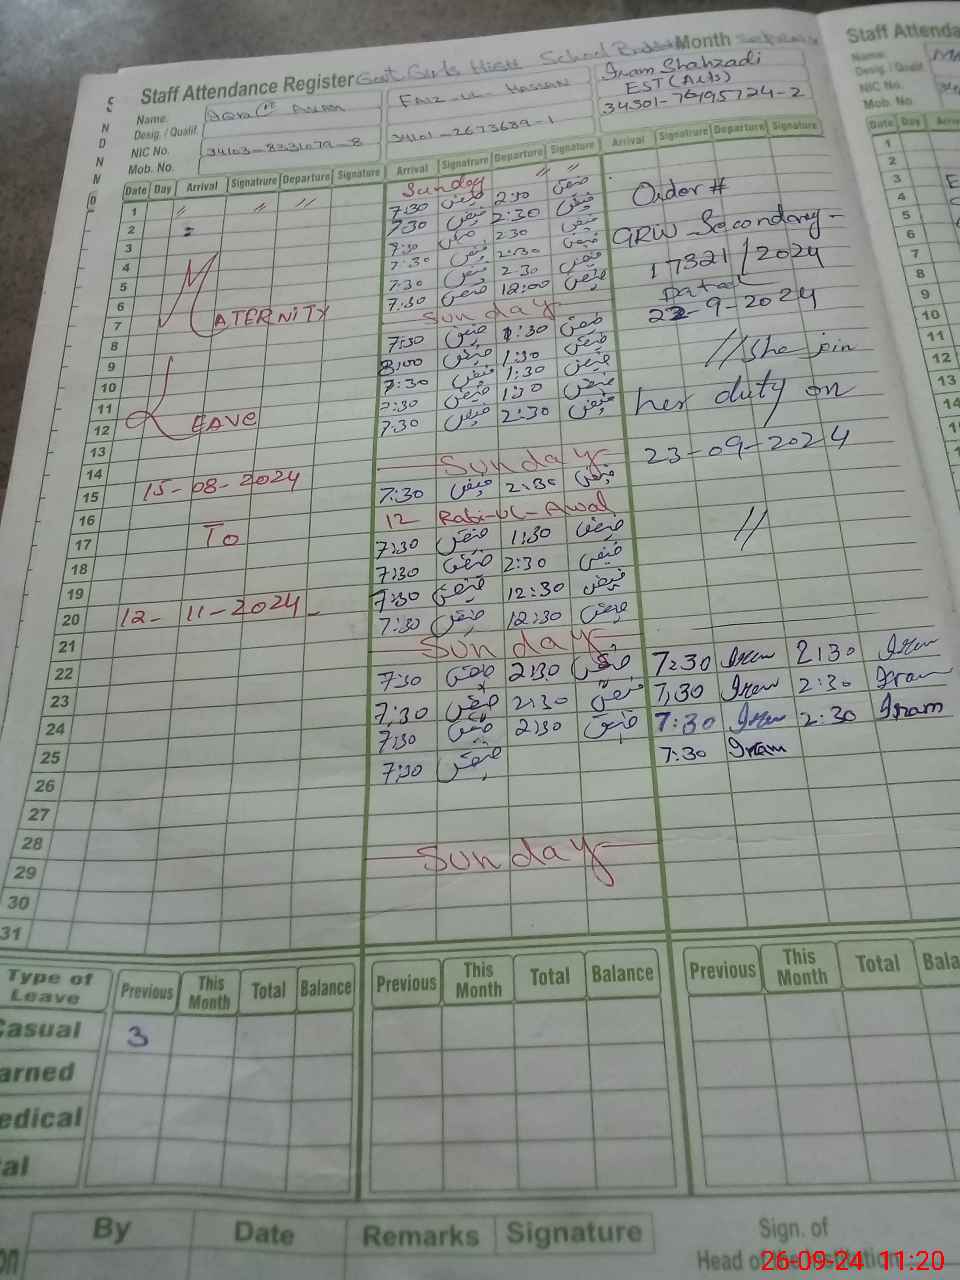 Staff Attendance Register Govt Girls High School Month
Staff Attenda
Name.
Desig. / Qualif.
NIC No. 34103-8231079-8
Mob. No.
FAIZ-UL-HASSAN
34101-2673689-1
Iram Shahzadi
EST (Arts)
34301-76495724-2
Name.
Desig. / Qualif
NIC No.
Mob. No.
Date Day Arrival Signatrure Departure Signature Arrival Signatrure Departure Signature Arrival Signatrure Departure Signature
Date Day
Sunday
1 " " " 7:30 فیض 2:30 فیض
2 7:30 فیض 2:30 فیض
Order #
3 7:30 فیض 2:30 فیض
GRW-Secondary-
4 7:30 فیض 2:30 فیض
17321/2024
5 7:30 فیض 2:30 فیض
Dated
6 7:30 فیض 12:00 فیض
22-9-2024
MATERNITY
7 Sunday
8 7:30 فیض 1:30 فیض
// She join
9 8:00 فیض 1:30 فیض
10 7:30 فیض 1:30 فیض
her duty on
11 7:30 فیض 1:30 فیض
LEAVE
12 7:30 فیض 2:30 فیض
23-09-2024
13
14 Sunday
15 15-08-2024 7:30 فیض 2:30 فیض
16 12 Rabi-ul-Awal
17 To 7:30 فیض 1:30 فیض
//
18 7:30 فیض 2:30 فیض
19 7:30 فیض 12:30 فیض
20 12-11-2024- 7:30 فیض 12:30 فیض
21 Sunday
22 7:30 فیض 2:30 فیض 7:30 Iram 2:30 Iram
23 7:30 فیض 2:30 فیض 7:30 Iram 2:30 Iram
24 7:30 فیض 2:30 فیض 7:30 Iram 2:30 Iram
25 7:30 فیض 7:30 Iram
26
27
28 Sunday
29
30
31
1
2
3
4
5
6
7
8
9
10
11
12
13
14
Type of Leave Previous This Month Total Balance Previous This Month Total Balance Previous This Month Total Bala
Casual 3
arned
edical
al
By Date Remarks Signature
Sign. of
Head of the Institution
26-09-24 11:20